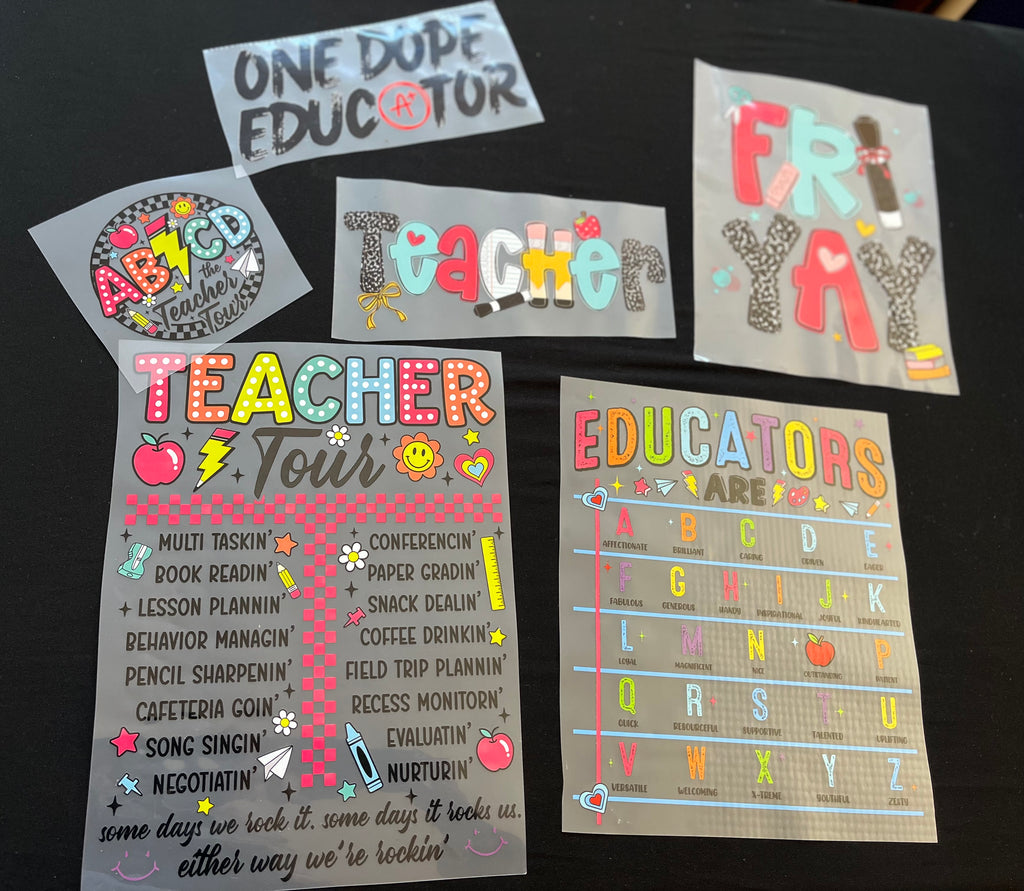 ONE DOPE
EDUCA+TOR
FRI
YAY
ABCD
the
Teacher
Tour
Teacher
TEACHER
Tour
MULTI TASKIN'
BOOK READIN'
LESSON PLANNIN'
BEHAVIOR MANAGIN'
PENCIL SHARPENIN'
CAFETERIA GOIN'
SONG SINGIN'
NEGOTIATIN'
CONFERENCIN'
PAPER GRADIN'
SNACK DEALIN'
COFFEE DRINKIN'
FIELD TRIP PLANNIN'
RECESS MONITORN'
EVALUATIN'
NURTURIN'
some days we rock it. some days it rocks us.
either way we're rockin'
EDUCATORS
ARE
A B C D E
AFFECTIONATE BRILLIANT CARING DRIVEN EAGER
F G H I J K
FABULOUS GENEROUS HANDY INSPIRATIONAL JOYFUL KINDHEARTED
L M N P
LOYAL MAGNIFICENT NICE OUTSTANDING PATIENT
Q R S T U
QUICK RESOURCEFUL SUPPORTIVE TALENTED UPLIFTING
V W X Y Z
VERSATILE WELCOMING X-TREME YOUTHFUL ZESTY